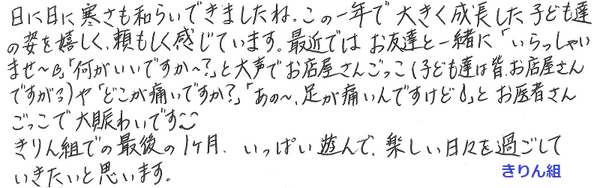 日に日に寒さも和らいできましたね。この一年で大きく成長した子ども達
の姿を嬉しく、頼もしく感じています。最近ではお友達と一緒に「いらっしゃい
ませ〜」「何がいいですか〜?」と大声でお店屋さんごっこ(子ども達は皆、お店屋さん
ですが?)や「どこが痛いですか?」「あの〜、足が痛いんですけど」とお医者さん
ごっこで大賑わいです
きりん組での最後の1ヶ月、いっぱい遊んで、楽しい日々を過ごして
いきたいと思います。
きりん組